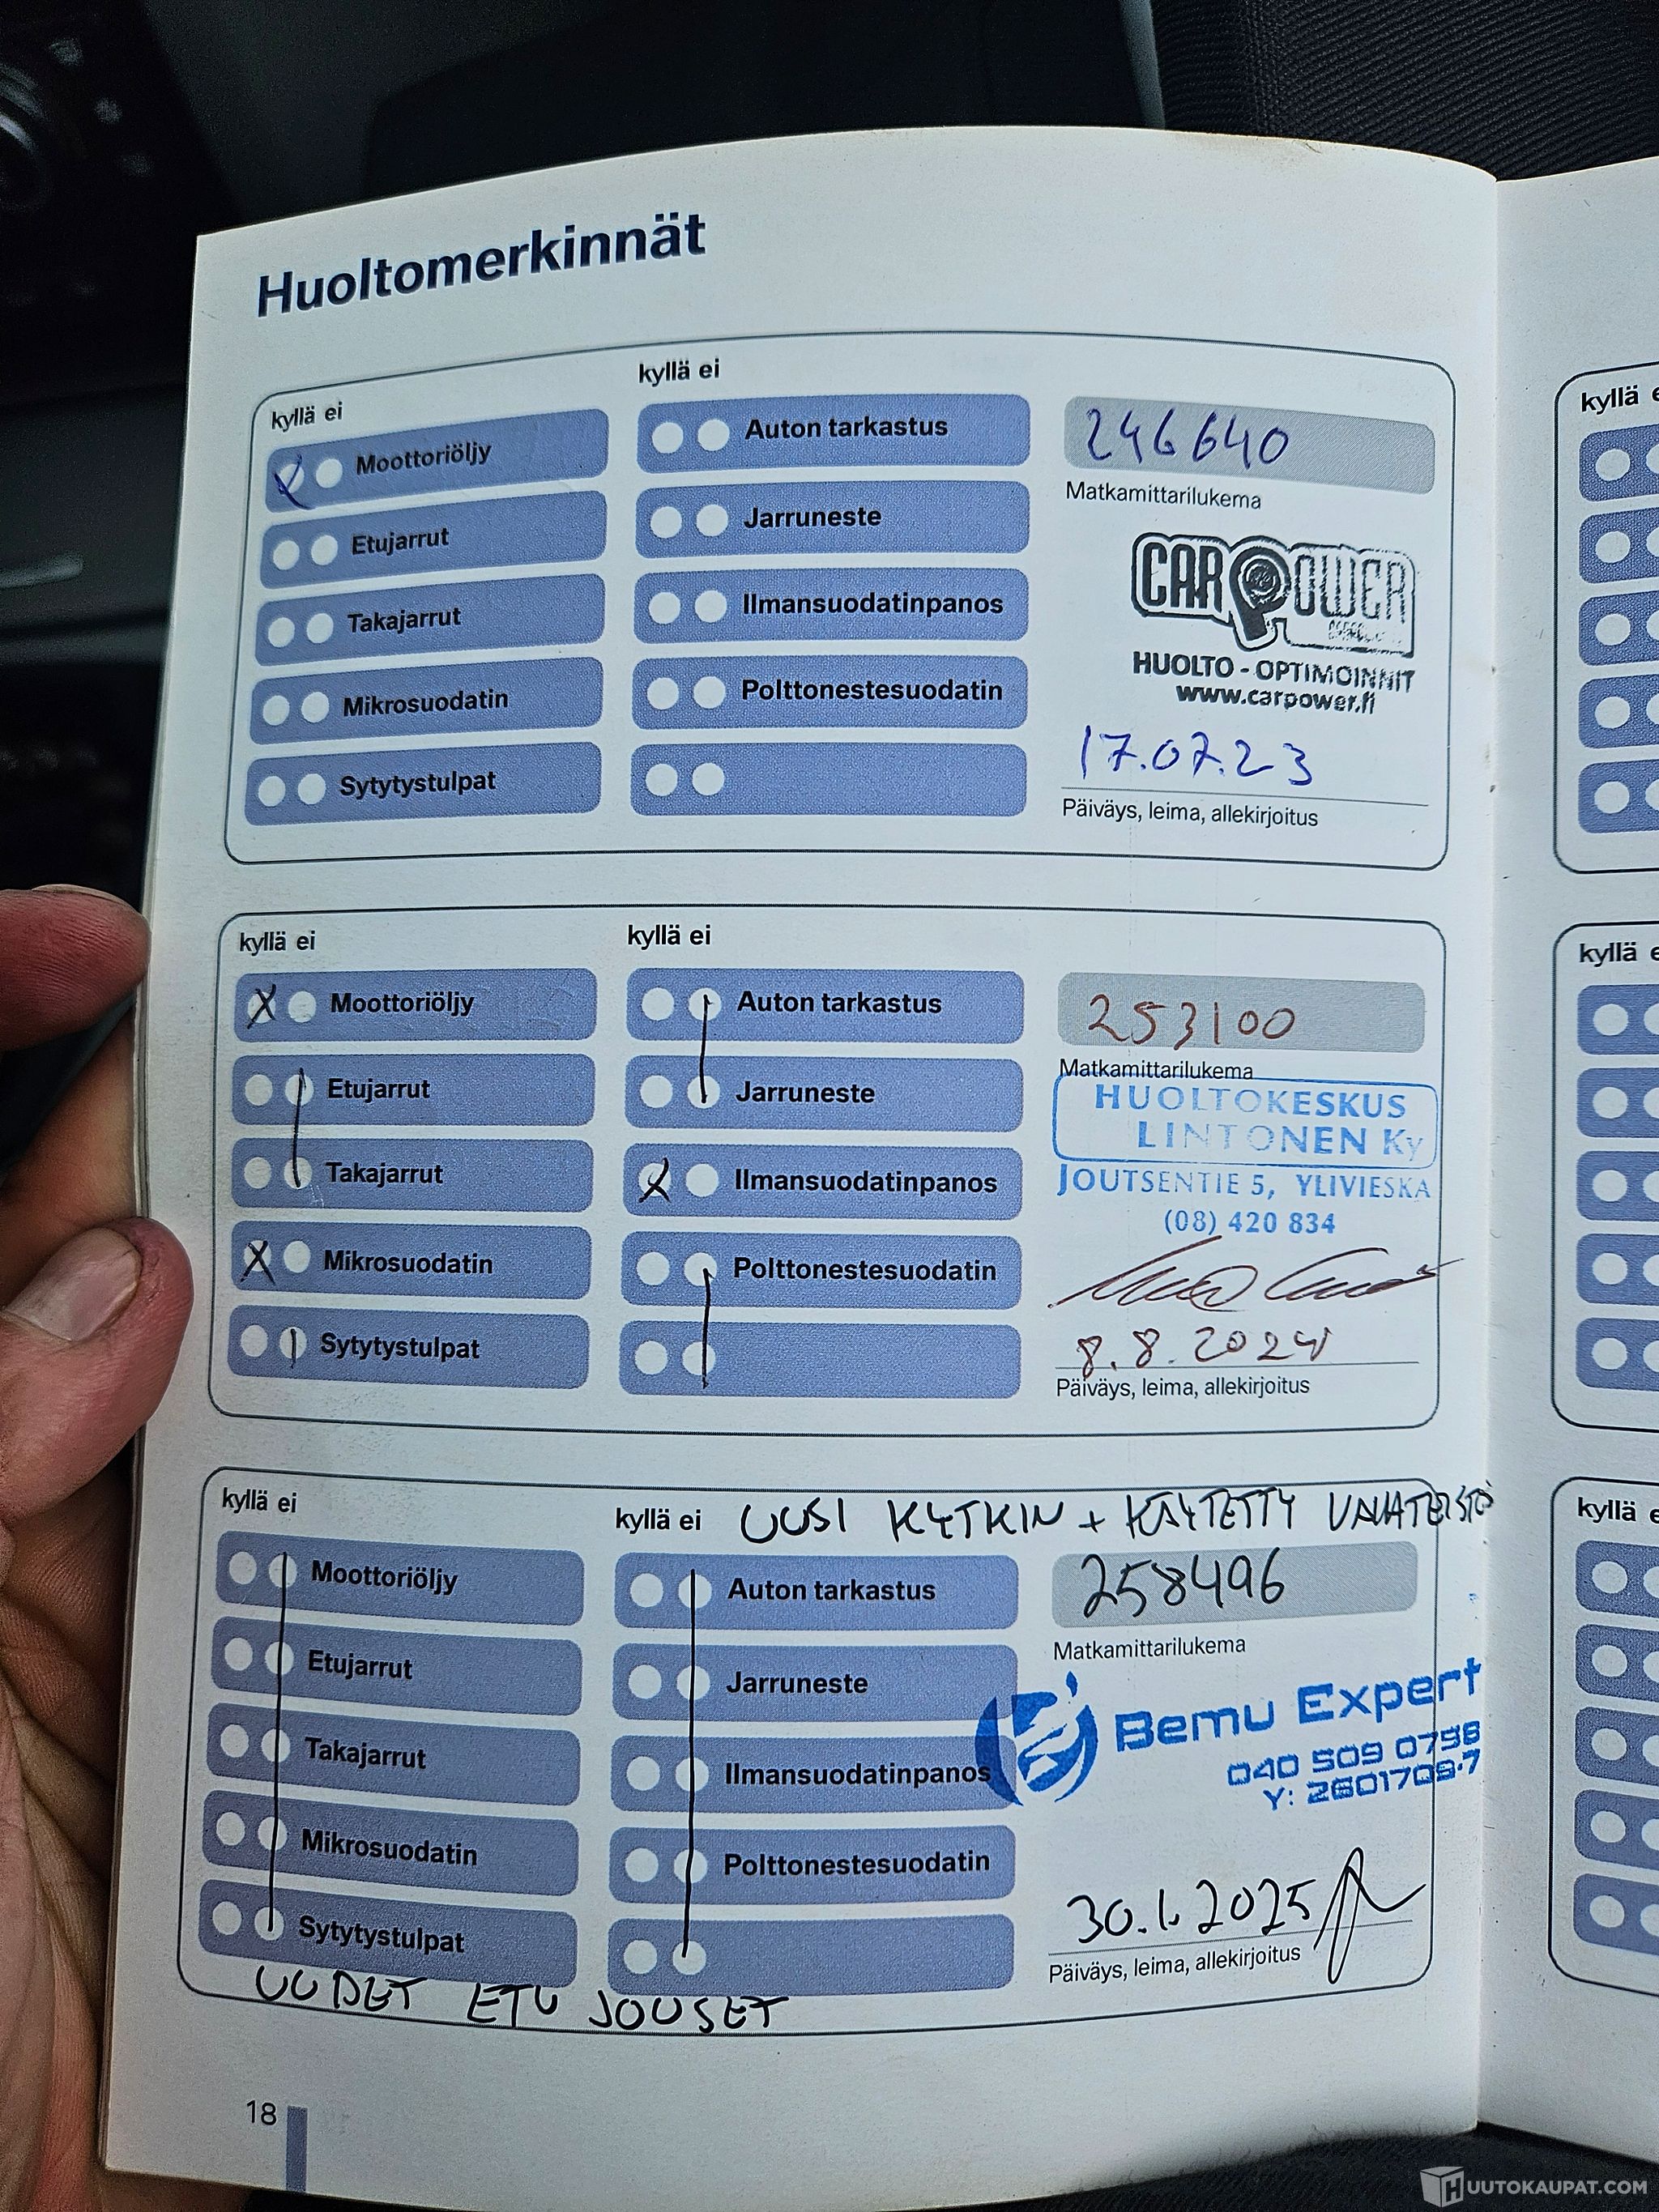 Huoltomerkinnät
kyllä ei
kyllä ei
Moottoriöljy
Etujarrut
Takajarrut
Mikrosuodatin
Sytytystulpat
Auton tarkastus
Jarruneste
Ilmansuodatinpanos
Polttonestesuodatin
246640
Matkamittarilukema
CARPOWER
HUOLTO - OPTIMOINNIT
www.carpower.fi
17.07.23
Päiväys, leima, allekirjoitus
kyllä ei
kyllä ei
X Moottoriöljy
Etujarrut
Takajarrut
X Mikrosuodatin
Sytytystulpat
Auton tarkastus
Jarruneste
X Ilmansuodatinpanos
Polttonestesuodatin
253100
Matkamittarilukema
HUOLTOKESKUS
LINTONEN Ky
JOUTSENTIE 5, YLIVIESKA
(08) 420 834
8.8.2024
Päiväys, leima, allekirjoitus
kyllä ei
kyllä ei
UUSI KYTKIN + KÄYTETTY
Moottoriöljy
Etujarrut
Takajarrut
Mikrosuodatin
Sytytystulpat
Auton tarkastus
Jarruneste
Ilmansuodatinpanos
Polttonestesuodatin
258496
Matkamittarilukema
Bemu Expert
040 509 0798
Y: 2601709-7
30.1.2025
Päiväys, leima, allekirjoitus
UUDET ETU JOUSET
18
kyllä
kyllä
kyllä
HUUTOKAUPAT.COM